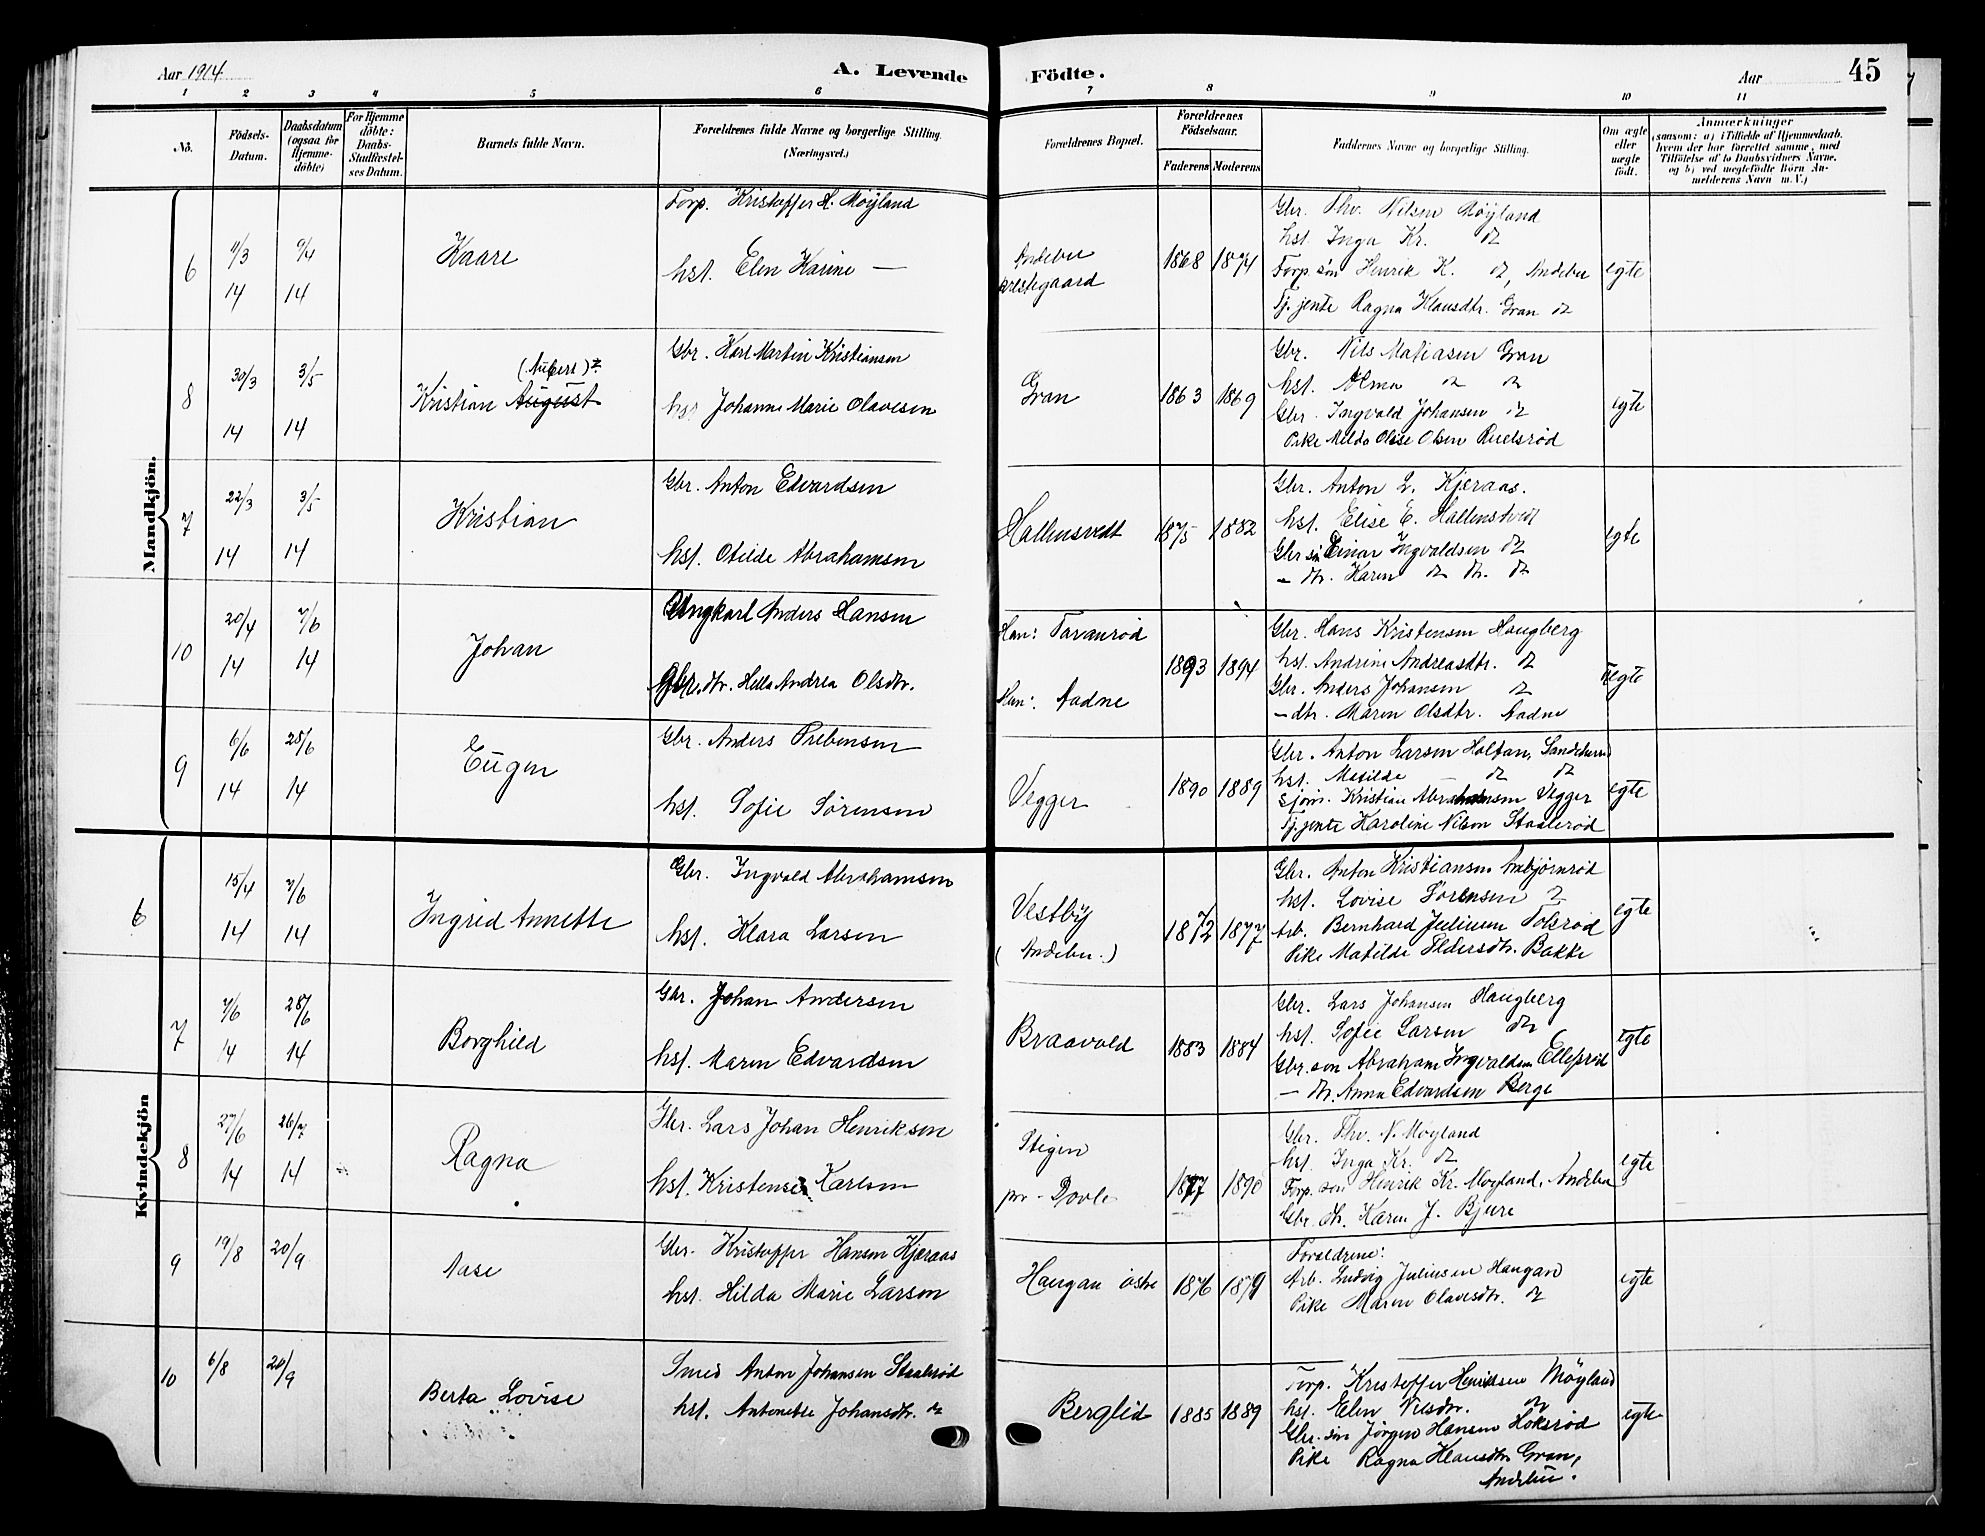 Aar 1914
A. Levende Födte.
Aar
45
1 2 3 4 5 6 7 8 9 10 11
No.
Födsels-
Datum.
Daabsdatum
(ogsaa for
Hjemme-
döbte)
For Hjemme
döbte:
Daabs-
Stadfæstel-
ses Datum.
Barnets fulde Navn.
Forældrenes fulde Navne og borgerlige Stilling.
(Næringsvei.)
Forældrenes Bopæl.
Forældrenes
Födselsaar.
Faderens Moderens
Faddernes Navne og borgerlige Stilling.
Om ægte
eller
uægte
födt.
Anmærkninger
(saasom: a) i Tilfælde af Hjemmedaab,
hvem der har forrettet samme, med
Tilföielse af to Daabsvidners Navne,
og b) ved uegtefödte Börn An-
melderens Navn m. V.)
Mandkjön.
6
11/3
14
9/4
14
Kaare
Forp. Kristoffer H. Möyland
hst. Elen Karine —
Andebu
prestegaard
1868 1874
Gbr. Thv. Nilsen Möyland
hst. Inga Kr. do
Forp. søn Henrik K. do, Andebu
Tj. jente Ragna Klausdtr. Gran do
egte
8
30/3
14
3/5
14
(Aubert)
Kristian August
Gbr. Karl Martin Kristiansen
hst. Johanne Marie Olavesen
Gran
1863 1869
Gbr. Nils Matiasen Gran
hst. Alma do do
Gbr. Ingvald Johansen do
Pike Milda Olise Olsen Ruelsrød
egte
7
22/3
14
3/5
14
Kristian
Gbr. Anton Edvardsen
hst. Otilde Abrahamsen
Hallensvedt
1875 1882
Gbr. Anton L. Kjæraas.
hst. Elise E. Hallenstvedt
Gbr. søn Einar Ingvaldsen do
— dtr. Karen do do. do
egte
10
20/4
14
7/6
14
Johan
Ungkarl Anders Hansen
Gbr. dtr. Hella Andrea Olsdtr.
Han: Taranrød
Hun: Aadne
1893 1894
Gbr. Hans Kristensen Haugberg
hst. Andrine Andreasdtr. do
Gbr. Anders Johansen do
— dtr. Maren Olsdtr. Aadne
uegte
9
6/6
14
28/6
14
Eugen
Gbr. Anders Prebensen
hst. Sofie Sørensen
Vegger
1890 1889
Gbr. Anton Larsen Holtan, Sandeherred
hst. Matilde do do
Sjøm. Kristian Abrahamsen Vegger
Tj. jente Karoline Nilsen Staalerød
egte
Kvindekjön
6
15/4
14
7/6
14
Ingrid Annette
Gbr. Ingvald Abrahamsen
hst. Klara Larsen
Vestby
(Andebu.)
1872 1877
Gbr. Anton Kristiansen Anbjørnrød
hst. Lovise Sørensen do
Arb. Bernhard Juliusen Tolsrød
Pike Matilde Pedersdtr. Bakke
egte
7
7/6
14
28/6
14
Borghild
Gbr. Johan Andersen
hst. Maren Edvardsen
Braavold
1883 1884
Gbr. Lars Johansen Haugberg
hst. Sofie Larsen do
Gbr. søn Abraham Ingvaldsen Ellefsrød
— dtr. Anna Edvardsen Berge
egte
8
27/6
14
26/7
14
Ragna
Gbr. Lars Johan Henriksen
hst. Kristense Karlsen
Stigen
pr. Dovle
1877 1890
Gbr. Thv. N. Moyland
hst. Inga Kr. do
Forp. søn Henrik Kr. Moyland, Andebu
Gbr. dtr. Karen J. Bjure
egte
9
19/8
20/9
Aase
Gbr. Kristoffer Hansen Kjæraas
hst. Hilda Marie Larsen
Haugan østre
1876 1879
Forældrene:
Arb. Ludvig Juliusen Haugan
Pike Maren Olavesdtr. do
egte
10
6/8
20/9
Berta Lovise
Smed Anton Johansen Staalerød
hst. Antonette Johansdtr. do
Berglid
1885 1889
Forp. Kristoffer Henriksen Möyland
hst. Elen Nilsdtr. do
Gbr. søn Jørgen Hansen Hoksrød
Pike Ragna Klausdtr. Gran,
Andebu.
egte